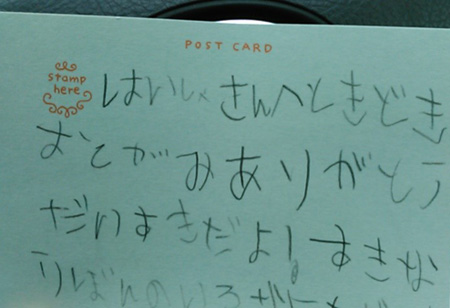 POST CARD
stamp
here
はいしゃさんへときどき
おてがみありがとう
だいすきだよ!すきな
りぼんのいろが